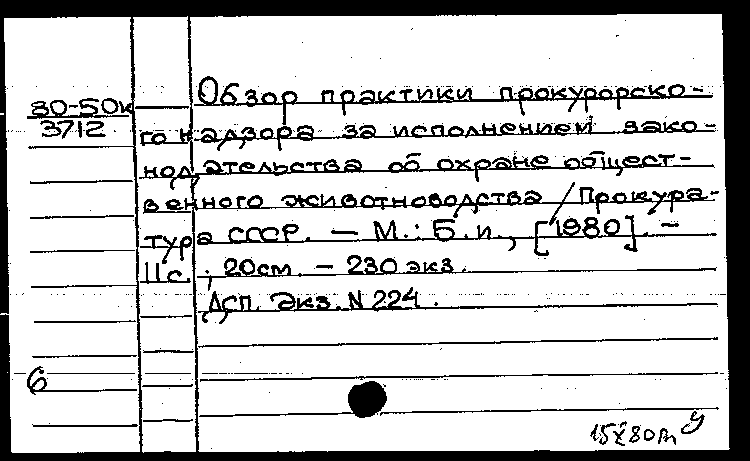 80-50к
3712
Обзор практики прокурорско-
го надзора за исполнением зако-
нодательства об охране общест-
венного животноводства / Прокура-
тура СССР. — М. : Б. и., [1980]. —
11 с. ; 20 см. — 230 экз.
Дсп. Экз. N 224.
6